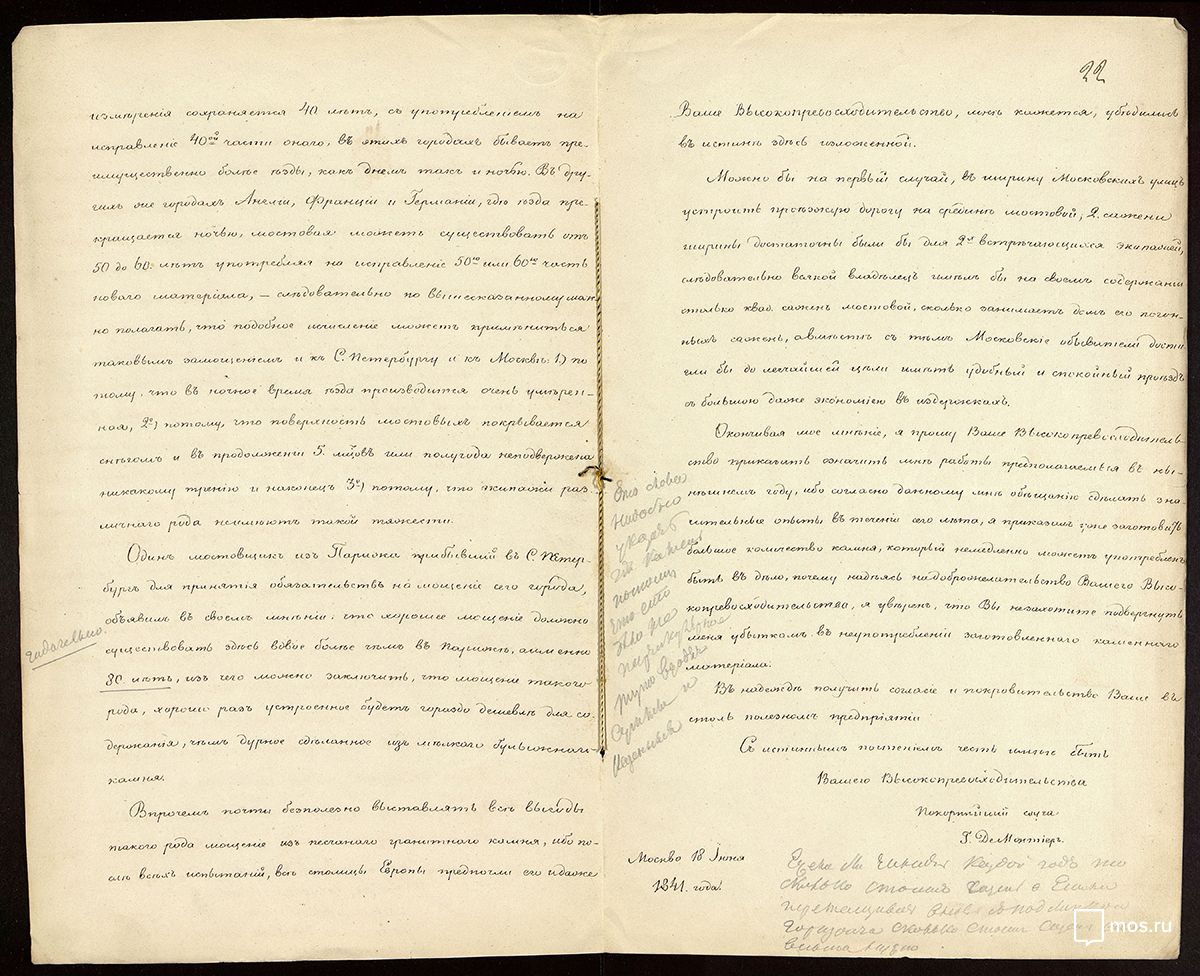 измѣренія сохраняется 40 лѣтъ, съ употребленіемъ на
исправленіе 40ой части онаго, въ этихъ городахъ бываетъ пре-
имущественно болѣе ѣзды, какъ днемъ такъ и ночью. Въ дру-
гихъ же городахъ Англіи, Франціи и Германіи, гдѣ ѣзда пре-
кращается ночью, мостовая можетъ существовать отъ
50 до 60. лѣтъ употребляя на исправленіе 50ю или 60ю часть
новаго матеріала, — слѣдовательно по вышесказанному мож-
но полагать, что подобное исчисленіе можетъ примѣниться
таковымъ замощеніемъ и къ С. Петербургу и къ Москвѣ: 1) по
тому, что въ ночное время ѣзда производится очень умѣрен-
ная, 2е) потому, что поверхность мостовыхъ покрывается
снѣгомъ и въ продолженіи 5. мцовъ или полугода неподвержена
никакому тренію и наконецъ 3е) потому, что экипажи раз-
личнаго рода неимѣютъ такой тяжести.
Одинъ мостовщикъ изъ Парижа прибывшій въ С. Петер-
бургъ для принятія обязательствъ на мощеніе сего города,
объявилъ въ своемъ мнѣніи: что хорошее мощеніе должно
существовать здѣсь вдвое болѣе чѣмъ въ Парижѣ, а именно
гадательно.
80 лѣтъ, изъ чего можно заключить, что мощеніе такого
рода, хорошо разъ устроенное будетъ гораздо дешевлѣ для со-
держанія, чѣмъ дурное сдѣланное изъ мѣлкаго булыжнаго
камня.
Впрочемъ почти безполезно выставлять всѣ выгоды
такого рода мощеніе изъ песчаного гранитнаго камня, ибо по-
слѣ всѣхъ испытаній, всѣ столицы Европы предпочли его и даже
22
Ваше Высокопревосходительство, мнѣ кажется, убѣдились
въ истинѣ здѣсь изложенной.
Можно бы на первый случай, въ ширину Московскихъ улицъ
устроить проѣзжую дорогу на срединѣ мостовой, 2. сажени
ширины достаточны были бы для 2хъ встрѣчающихся экипажей,
слѣдовательно всякой владѣлецъ имѣлъ бы на своемъ содержаніи
столько квад. сажень мостовой, сколько занимаетъ домъ его погон-
ныхъ сажень, а вмѣстѣ съ тѣмъ Московскіе обыватели дости-
гли бы до легчайшей цѣли имѣть удобный и спокойный проѣздъ
съ большою даже экономіею въ издержкахъ.
Оканчивая мое мнѣніе, я прошу Ваше Высокопревосходитель-
ство приказать означить мнѣ работы предполагаемыя въ ны-
нѣшнемъ году, ибо согласно данному мнѣ обѣщанію сдѣлать зна-
чительные опыты въ теченіи сего лѣта, я приказалъ уже заготовить
большое количество камня, который немедленно можетъ употребленъ
быть въ дѣло, почему надѣясь на доброжелательство Вашего Высо-
копревосходительства, я увѣренъ, что Вы незахотите подвергнуть
меня убыткамъ въ неупотребленіи заготовленнаго каменнаго
матеріала.
Въ надеждѣ получить согласіе и покровительство Ваше въ
столь полезномъ предпріятіи
Съ истиннымъ почтеніемъ честь имѣю быть
Вашего Высокопревосходительства
Покорнѣйшій слуга
Г. ДеМонтіеръ
Москва 18 Іюня
1841. года.
Эти слова
Надобно
указать
гдѣ камень
сколько стоитъ
mos.ru